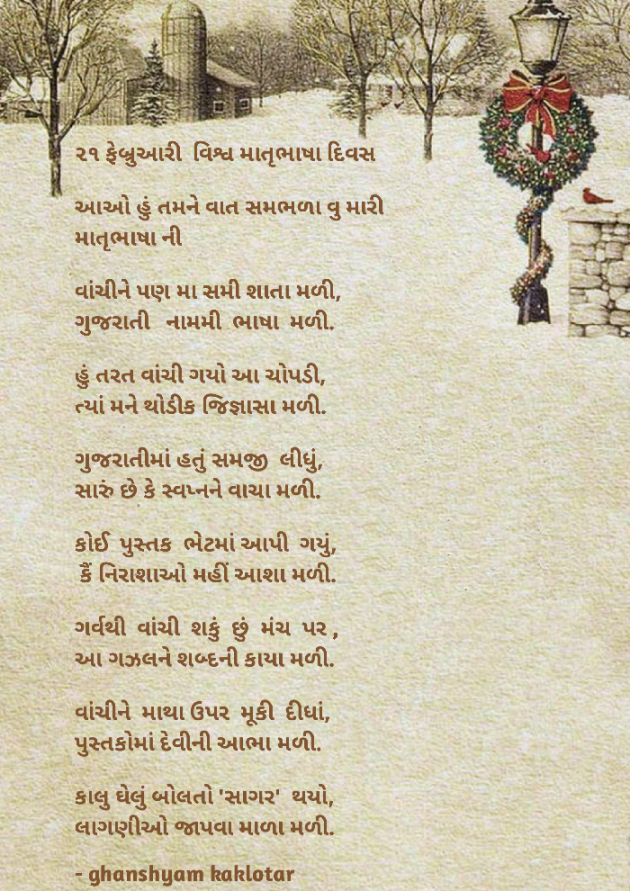 ૨૧ ફેબ્રુઆરી વિશ્વ માતૃભાષા દિવસ
આઓ હું તમને વાત સમભળા વુ મારી
માતૃભાષા ની
વાંચીને પણ મા સમી શાતા મળી,
ગુજરાતી નામમી ભાષા મળી.
હું તરત વાંચી ગયો આ ચોપડી,
ત્યાં મને થોડીક જિજ્ઞાસા મળી.
ગુજરાતીમાં હતું સમજી લીધું,
સારું છે કે સ્વપ્નને વાચા મળી.
કોઈ પુસ્તક ભેટમાં આપી ગયું,
કૈં નિરાશાઓ મહીં આશા મળી.
ગર્વથી વાંચી શકું છું મંચ પર ,
આ ગઝલને શબ્દની કાયા મળી.
વાંચીને માથા ઉપર મૂકી દીધાં,
પુસ્તકોમાં દેવીની આભા મળી.
કાલુ ઘેલું બોલતો 'સાગર' થયો,
લાગણીઓ જાપવા માળા મળી.
- ghanshyam kaklotar